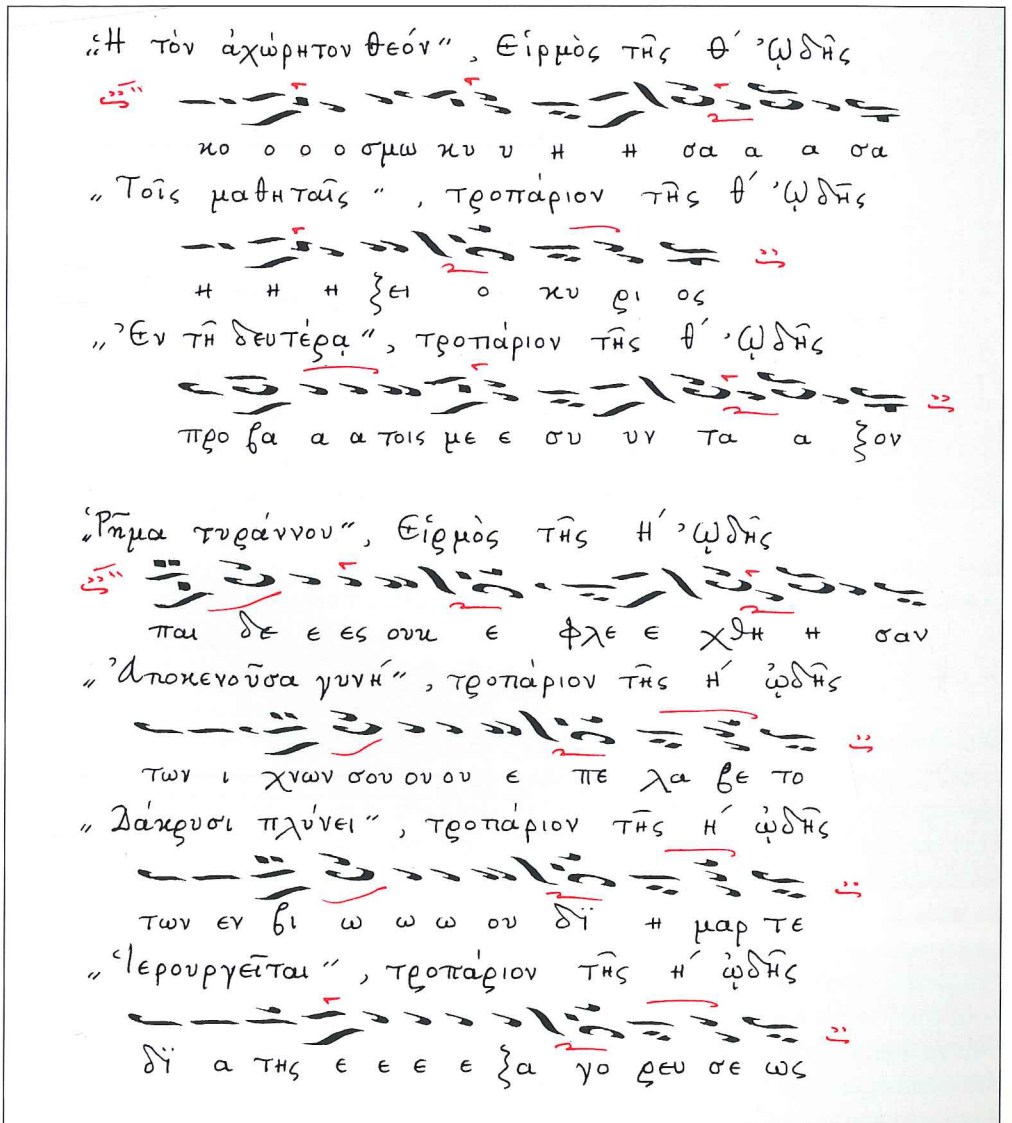 „Ἡ τὸν ἀχώρητον Θεόν", Εἱρμὸς τῆς θ΄ ᾨδῆς
κο ο ο ο σμω κυ υ η η σα α α σα
„Τοῖς μαθηταῖς", τροπάριον τῆς θ΄ ᾨδῆς
η η η ξει ο κυ ρι ος
„Ἐν τῇ δευτέρᾳ", τροπάριον τῆς θ΄ ᾨδῆς
προ βα α α τοις με ε συ υν τα α ξον
„Ῥῆμα τυράννου", Εἱρμὸς τῆς Η΄ ᾠδῆς
παι δε ε ες ουκ ε φλε ε χθη η σαν
„Ἀποκενοῦσα γυνή", τροπάριον τῆς Η΄ ᾠδῆς
των ι χνων σου ου ου ε πε λα βε το
„Δάκρυσι πλύνει", τροπάριον τῆς Η΄ ᾠδῆς
των εν βι ω ω ω ου δϊ η μαρ τε
„Ἱερουργεῖται", τροπάριον τῆς η΄ ᾠδῆς
δϊ α της ε ε ε ε ξα γο ρευ σε ως